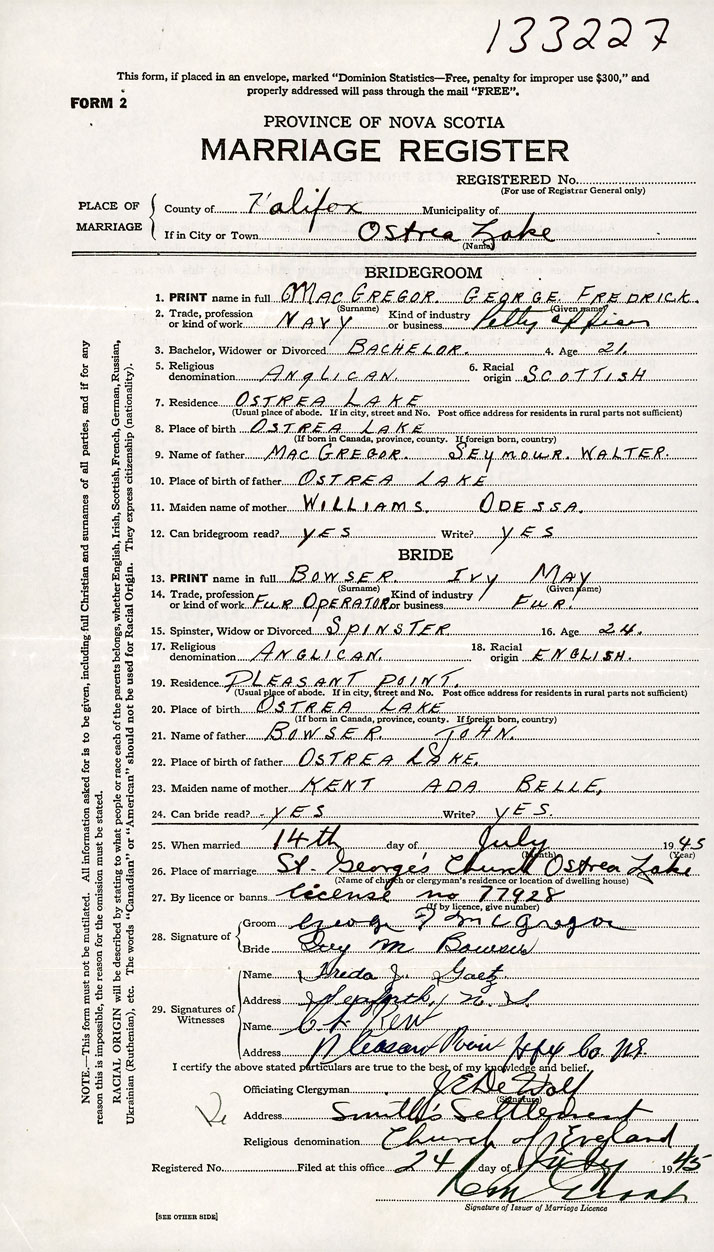 133227
This form, if placed in an envelope, marked "Dominion Statistics—Free, penalty for improper use $300," and
properly addressed will pass through the mail "FREE".
FORM 2
PROVINCE OF NOVA SCOTIA
MARRIAGE REGISTER
REGISTERED No.
(For use of Registrar General only)
PLACE OF MARRIAGE
County of Halifax Municipality of
If in City or Town Ostrea Lake
(Name)
BRIDEGROOM
1. PRINT name in full MacGREGOR. GEORGE. FREDRICK.
(Surname) (Given name)
2. Trade, profession or kind of work NAVY Kind of industry or business Petty officer
3. Bachelor, Widower or Divorced BACHELOR. 4. Age 21.
5. Religious denomination ANGLICAN. 6. Racial origin SCOTTISH
7. Residence OSTREA LAKE
(Usual place of abode. If in city, street and No. Post office address for residents in rural parts not sufficient)
8. Place of birth OSTREA LAKE
(If born in Canada, province, county. If foreign born, country)
9. Name of father MacGREGOR. SEYMOUR. WALTER.
10. Place of birth of father OSTREA LAKE
11. Maiden name of mother WILLIAMS. ODESSA.
12. Can bridegroom read? YES Write? YES
BRIDE
13. PRINT name in full BOWSER. IVY MAY
(Surname) (Given name)
14. Trade, profession or kind of work FUR OPERATOR Kind of industry or business FUR.
15. Spinster, Widow or Divorced SPINSTER 16. Age 24.
17. Religious denomination ANGLICAN. 18. Racial origin ENGLISH.
19. Residence PLEASANT POINT.
(Usual place of abode. If in city, street and No. Post office address for residents in rural parts not sufficient)
20. Place of birth OSTREA LAKE
(If born in Canada, province, county. If foreign born, country)
21. Name of father BOWSER. JOHN.
22. Place of birth of father OSTREA LAKE.
23. Maiden name of mother KENT ADA BELLE,
24. Can bride read? YES Write? YES.
25. When married 14th day of July 1945
(Month) (Year)
26. Place of marriage St. George's Church Ostrea Lake
(Name of church or clergyman's residence or location of dwelling house)
27. By licence or banns license no 77928
(If by licence, give number)
28. Signature of
Groom George F McGregor
Bride Ivy M Bowser
29. Signatures of Witnesses
Name Freda J. Gaetz
Address Seaforth, N. S.
Name Kent
Address Pleasant Point Hfx Co. NS.
I certify the above stated particulars are true to the best of my knowledge and belief.
Officiating Clergyman J E DeWolf
(Signature)
Address Smith's Settlement
Religious denomination Church of England
Registered No. Filed at this office 24 day of July 1945
Signature of Issuer of Marriage Licence
[SEE OTHER SIDE]
NOTE.—This form must not be mutilated. All information asked for is to be given, including full Christian and surnames of all parties, and if for any
reason this is impossible, the reason for the omission must be stated.
RACIAL ORIGIN will be described by stating to what people or race each of the parents belongs, whether English, Irish, Scottish, French, German, Russian,
Ukrainian (Ruthenian), etc. The words "Canadian" or "American" should not be used for Racial Origin. They express citizenship (nationality).